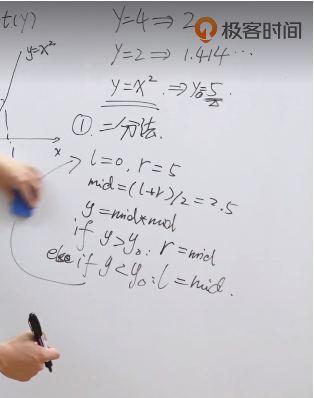 t(y)
y=4 ⇒ 2
极客时间
y=x²
y=2 ⇒ 1.414...
y=x² . ⇒ y₀=5
x
1
① 二分法.
l=0, r=5
mid=(l+r)/2=2.5
y=mid*mid
if y>y₀: r=mid
else if y<y₀: l=mid.